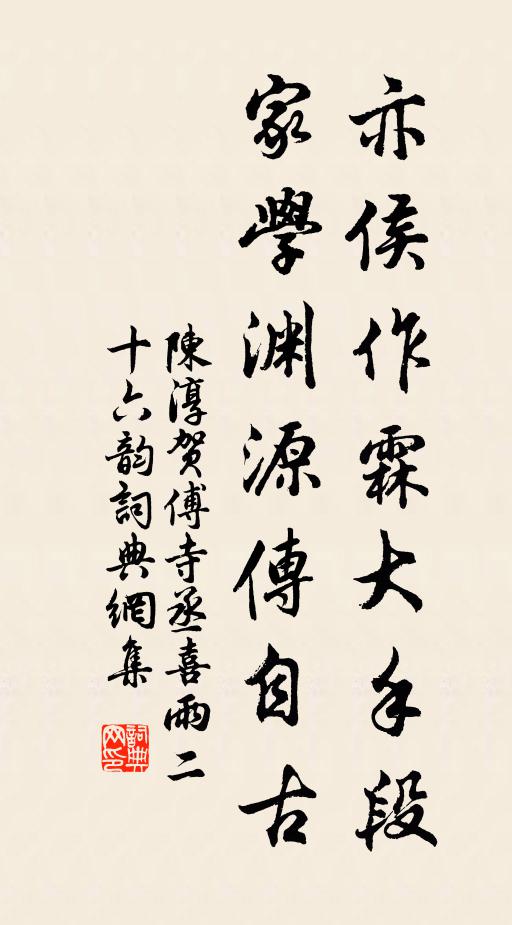 亦侯作霖大手段
家學渊源傳自古
陳淳贺傅寺丞喜雨二
十六韵詞典網集
詞典
网印